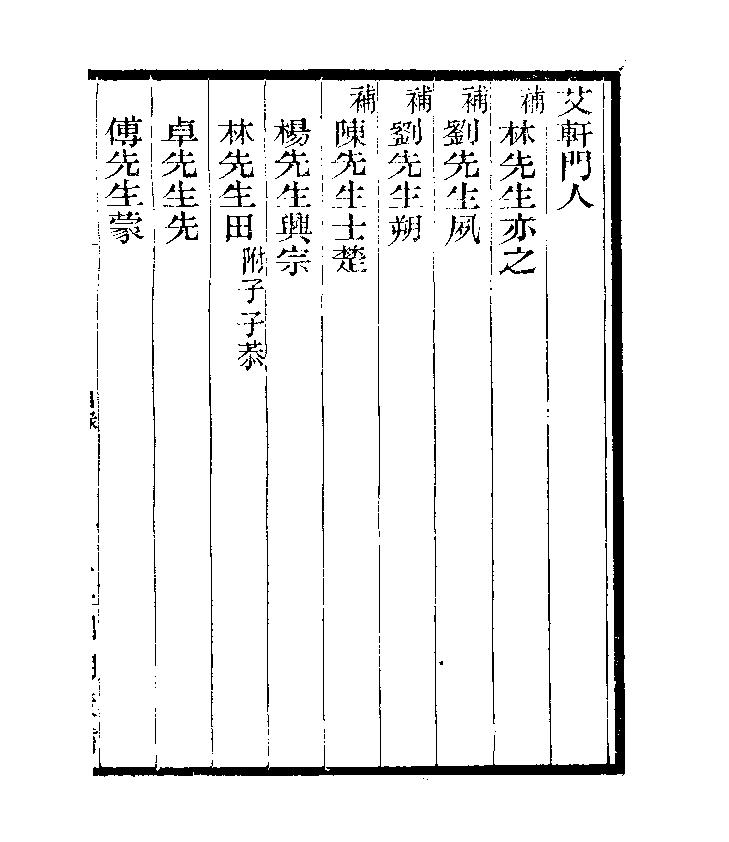 艾軒門人
補林先生亦之
補劉先生夙
補劉先生朔
補陳先生士楚
楊先生興宗
林先生田附子子恭
卓先生先
傅先生蒙